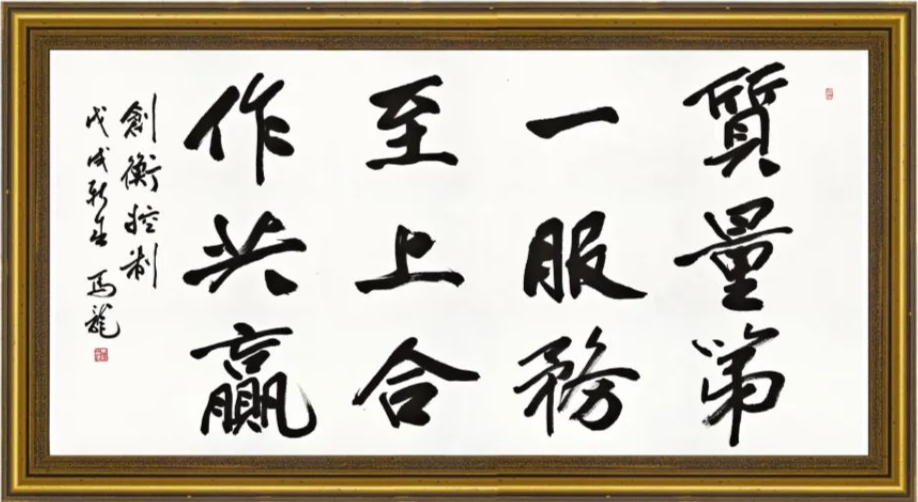 質量第
一服務
至上合
作共贏
創衡控制
戊戌新春 馬龍